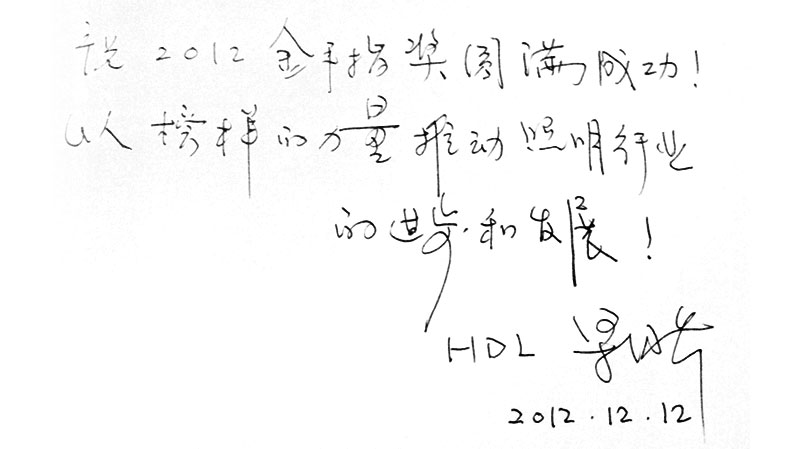 祝2012金手指奖圆满成功！
以榜样的力量推动照明行业
的进步和发展！
HDL
2012.12.12